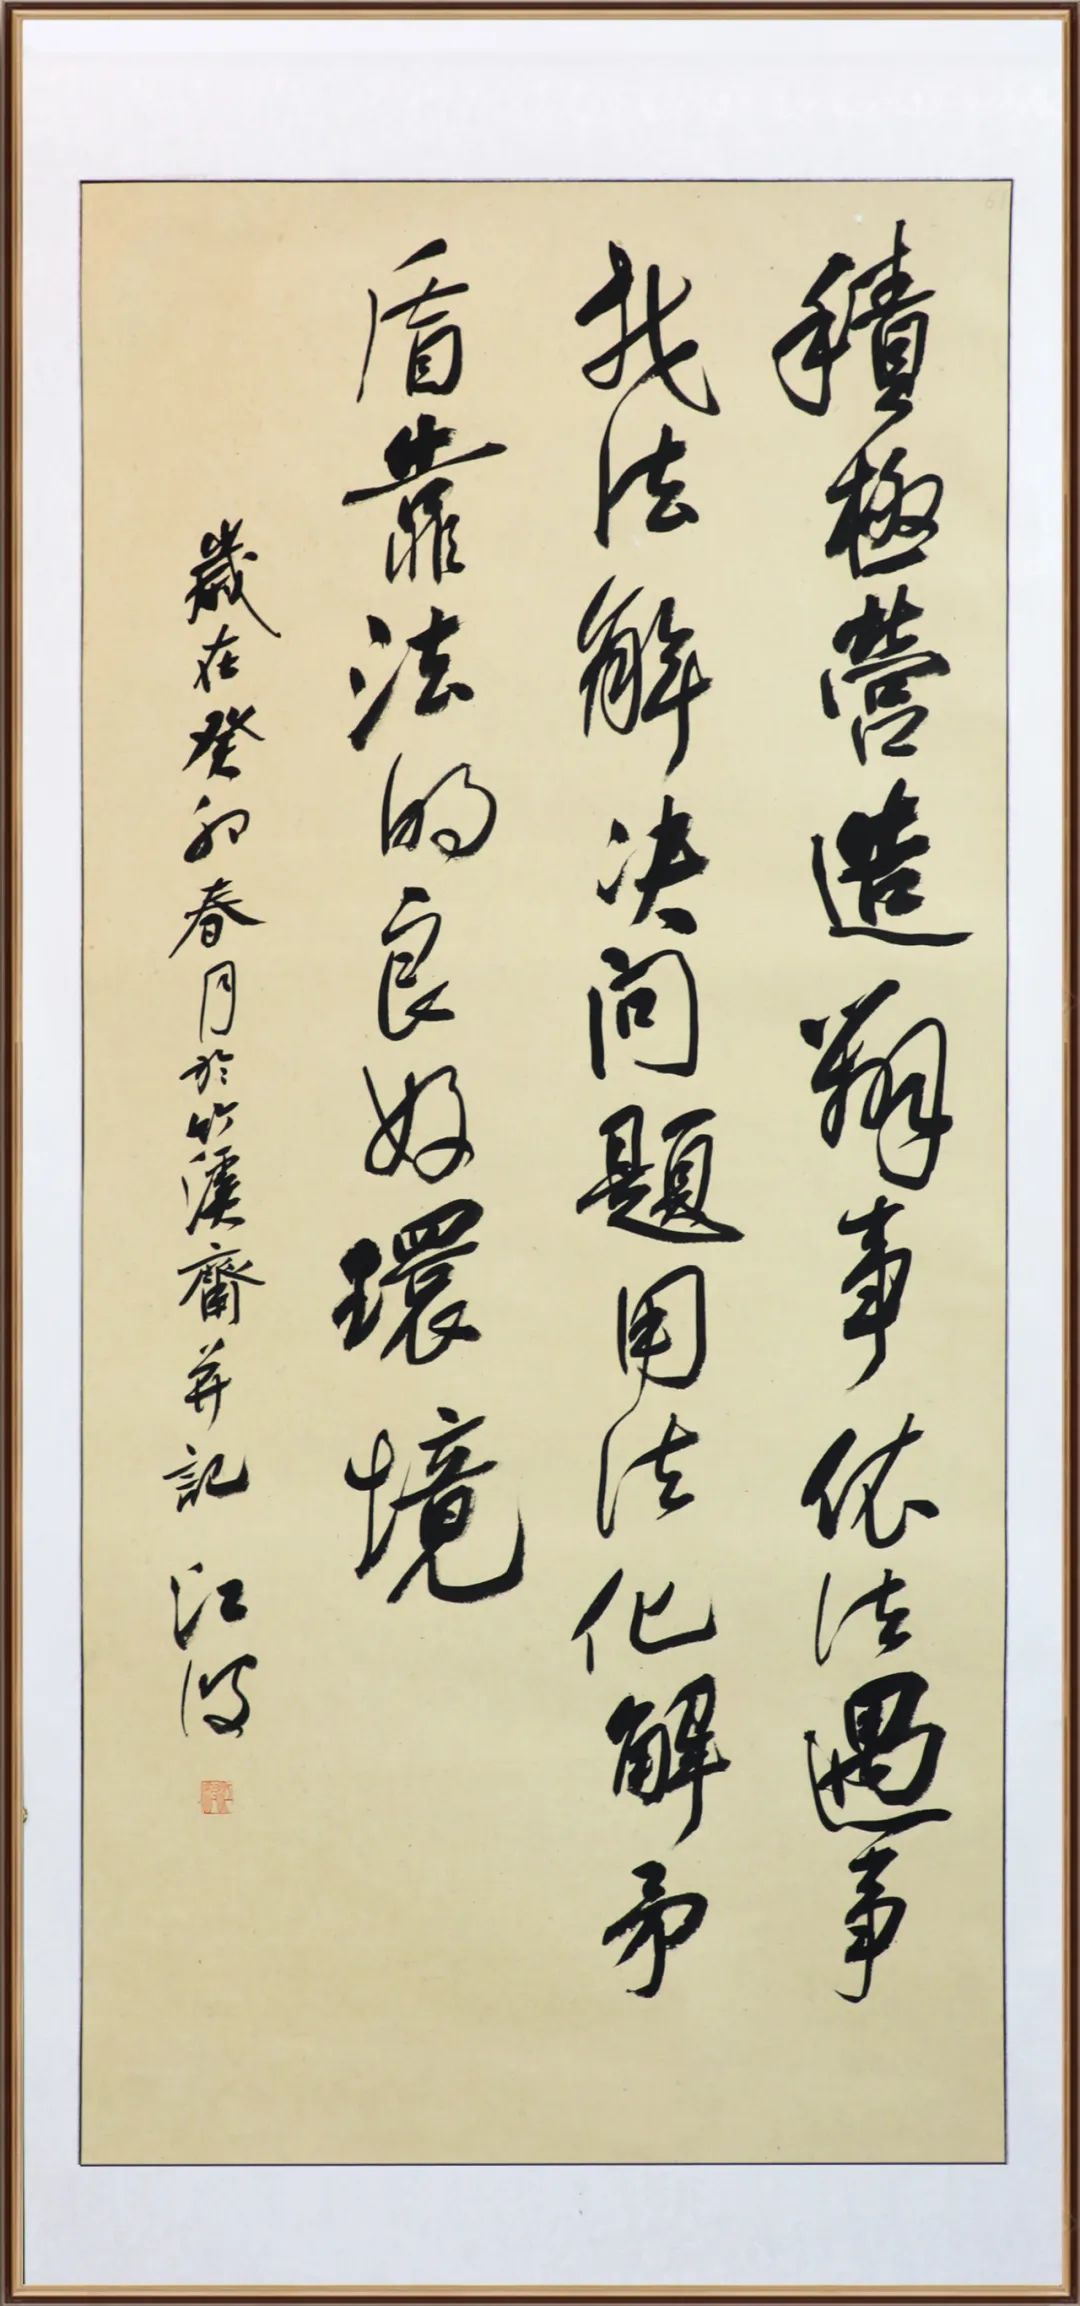 積極营造辦事依法遇事
找法解决问題用法化解矛
盾靠法的良好環境
歲在癸卯春月於竹齋并記 江波